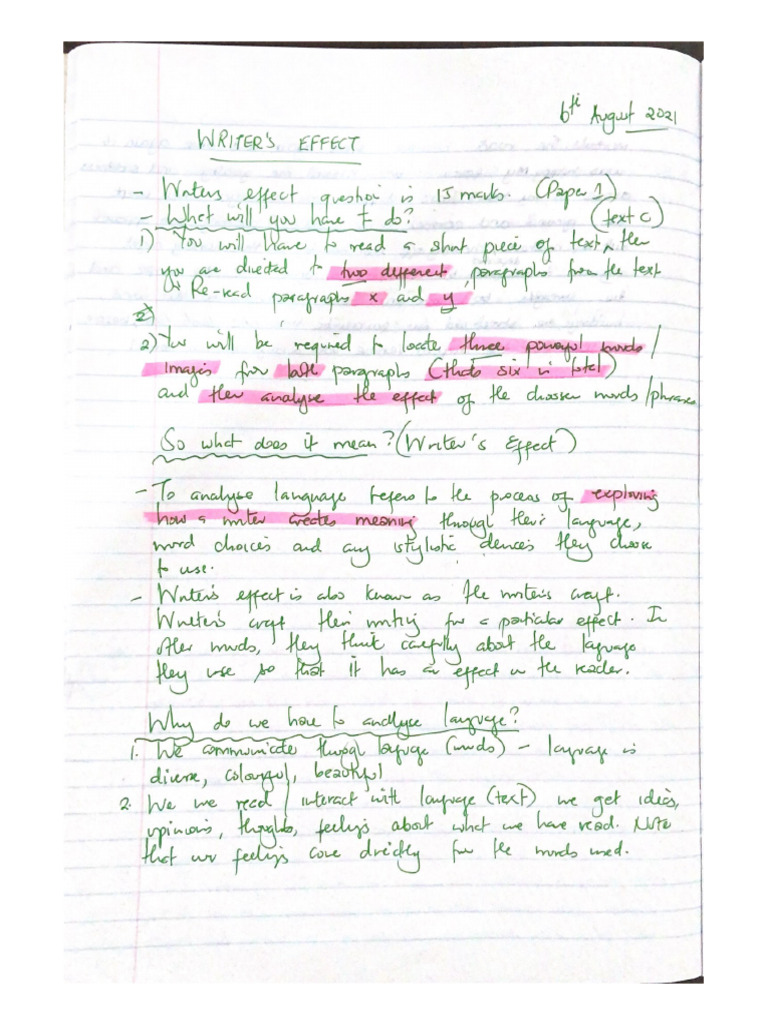 6th August 2021
WRITER'S EFFECT
- Writers effect question is 15 marks. (Paper 1)
- What will you have to do? (text C)
1) You will have to read a short piece of text, then
you are directed to two different paragraphs from the text
Re-read paragraphs x and y
2)
2) You will be required to locate three powerful words /
Images from both paragraphs (thats six in total)
and then analyse the effect of the chosen words/phrases
So what does it mean? (Writer's Effect)
- To analyse language refers to the process of exploring
how a writer creates meaning through their language,
word choices and any stylistic devices they choose
to use.
- Writer's effect is also known as the writer's craft.
Writer's craft their writing for a particular effect. In
other words, they think carefully about the language
they use so that it has an effect on the reader.
Why do we have to analyse language?
1. We communicate through language (words) - language is
diverse, colourful, beautiful
2. We we read / interact with language (text) we get ideas,
opinions, thoughts, feelings about what we have read. Note
that our feelings come directly from the words used.